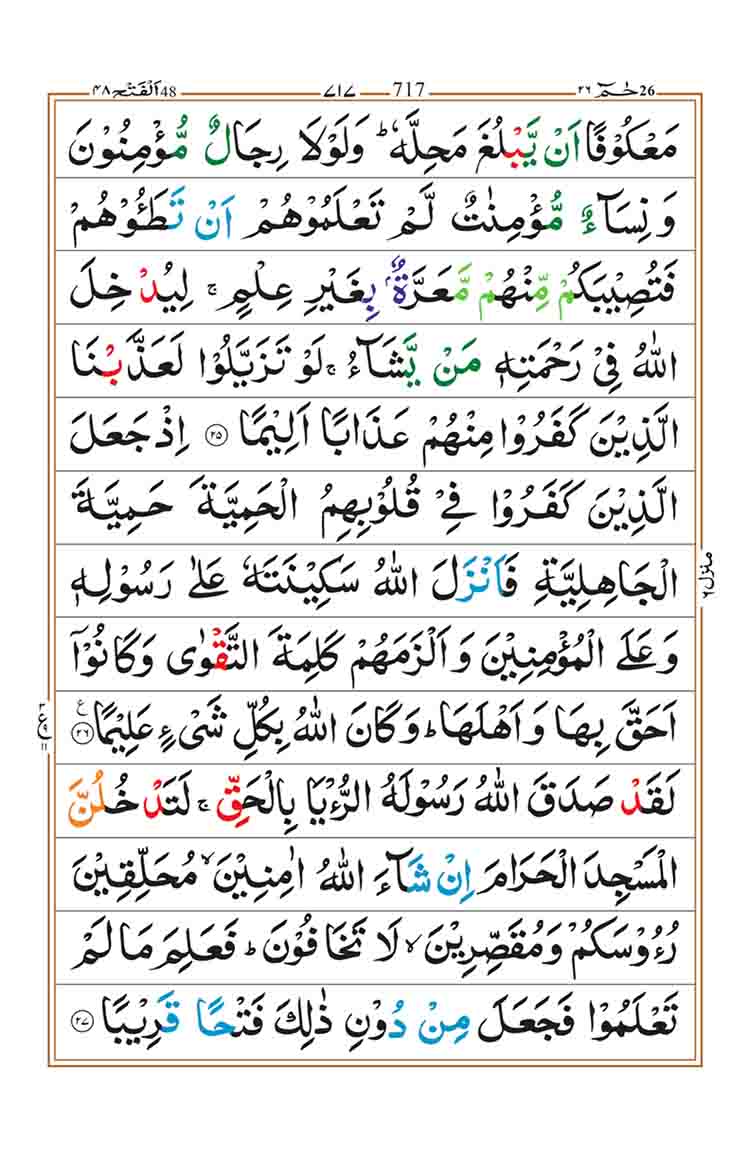 الفتح ٤٨ 48 ٧١٧ 717 حٰمٓ ٢٦ 26
مَعْكُوْفًا اَنْ يَّبْلُغَ مَحِلَّهٗ ؕ وَلَوْلَا رِجَالٌ مُّؤْمِنُوْنَ
وَ نِسَآءٌ مُّؤْمِنٰتٌ لَّمْ تَعْلَمُوْهُمْ اَنْ تَطَـُٔوْهُمْ
فَتُصِيْبَكُمْ مِّنْهُمْ مَّعَرَّةٌۢ بِغَيْرِ عِلْمٍ ۚ لِيُدْخِلَ
اللّٰهُ فِيْ رَحْمَتِهٖ مَنْ يَّشَآءُ ۚ لَوْ تَزَيَّلُوْا لَعَذَّبْنَا
الَّذِيْنَ كَفَرُوْا مِنْهُمْ عَذَابًا اَلِيْمًا ۝٢٥ اِذْ جَعَلَ
الَّذِيْنَ كَفَرُوْا فِيْ قُلُوْبِهِمُ الْحَمِيَّةَ حَمِيَّةَ
الْجَاهِلِيَّةِ فَاَنْزَلَ اللّٰهُ سَكِيْنَتَهٗ عَلٰى رَسُوْلِهٖ
وَ عَلَى الْمُؤْمِنِيْنَ وَ اَلْزَمَهُمْ كَلِمَةَ التَّقْوٰى وَ كَانُوْۤا
اَحَقَّ بِهَا وَ اَهْلَهَا ؕ وَ كَانَ اللّٰهُ بِكُلِّ شَيْءٍ عَلِيْمًا ۝٢٦ ع
لَقَدْ صَدَقَ اللّٰهُ رَسُوْلَهُ الرُّءْيَا بِالْحَقِّ ۚ لَتَدْخُلُنَّ
الْمَسْجِدَ الْحَرَامَ اِنْ شَآءَ اللّٰهُ اٰمِنِيْنَ ۙ مُحَلِّقِيْنَ
رُءُوْسَكُمْ وَ مُقَصِّرِيْنَ ۙ لَا تَخَافُوْنَ ؕ فَعَلِمَ مَا لَمْ
تَعْلَمُوْا فَجَعَلَ مِنْ دُوْنِ ذٰلِكَ فَتْحًا قَرِيْبًا ۝٢٧
منزل ٦
٣ ع ٩ ١١